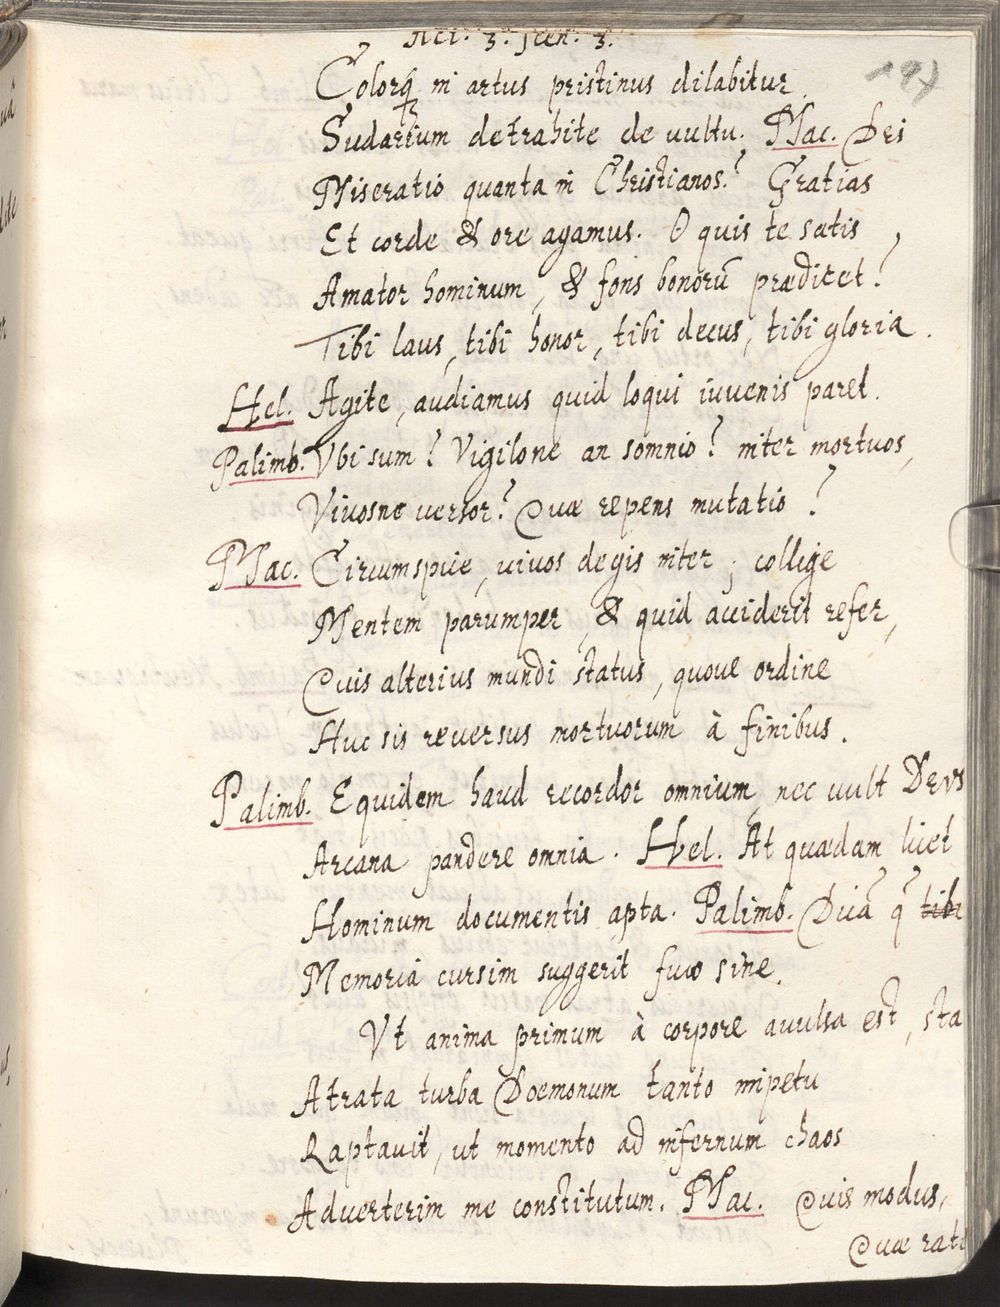 Act. 3. scen. 3.
197
Colorq̃ in artus pristinus dilabitur.
Sudarium detrahite de uultu. Mac. Dei
Miseratio quanta in Christianos? Gratias
Et corde & ore agamus. O quis te satis,
Amator hominum, & fons bonorũ prædicet?
Tibi laus, tibi honor, tibi decus, tibi gloria.
Hel. Agite, audiamus quid loqui iuuenis paret.
Palimb. Vbi sum? Vigilone an somnio? inter mortuos,
Viuosne uersor? Quæ repens mutatio?
Mac. Circumspice, uiuos degis inter; collige
Mentem parumper, & quid acciderit refer,
Quis alterius mundi status, quoue ordine
Huc sis reuersus mortuorum à finibus.
Palimb. Equidem haud recordor omnium nec uult DEVS
Arcana pandere omnia. Hel. At quædam licet
Hominum documentis apta. Palimb. Dicã q̃ tibi
Memoria cursim suggerit fuco sine.
Vt anima primum à corpore auulsa est, sta
Atrata turba Dœmonum tanto impetu
Raptauit, ut momento ad infernum chaos
Aduerterim me constitutum. Mac. Quis modus,
Quæ rati